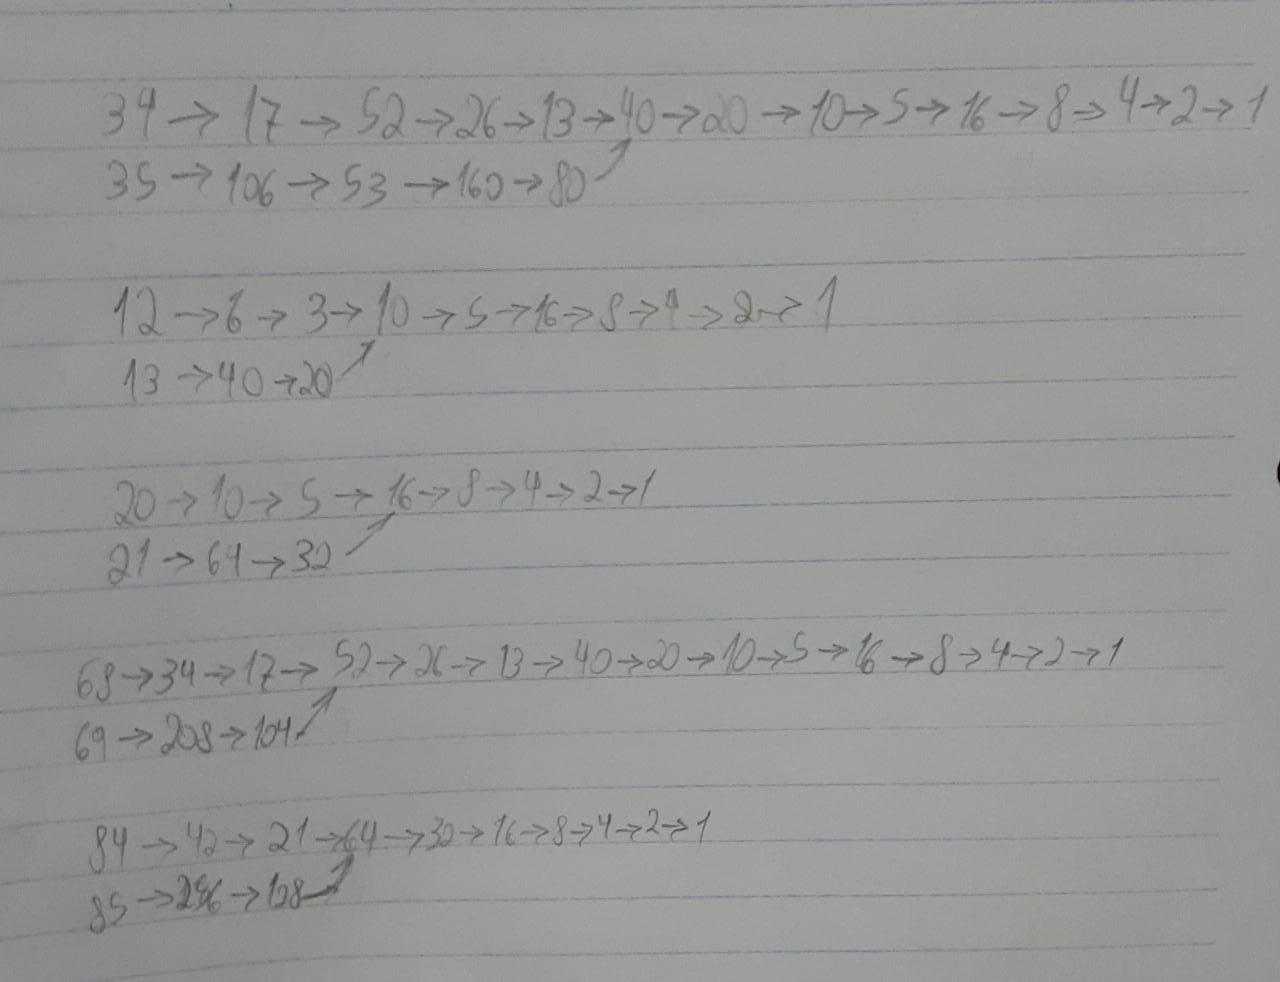 34 → 17 → 52 → 26 → 13 → 40 → 20 → 10 → 5 → 16 → 8 → 4 → 2 → 1
35 → 106 → 53 → 160 → 80 ↗
12 → 6 → 3 → 10 → 5 → 16 → 8 → 4 → 2 → 1
13 → 40 → 20 ↗
20 → 10 → 5 → 16 → 8 → 4 → 2 → 1
21 → 64 → 32 ↗
68 → 34 → 17 → 52 → 26 → 13 → 40 → 20 → 10 → 5 → 16 → 8 → 4 → 2 → 1
69 → 208 → 104 ↗
84 → 42 → 21 → 64 → 32 → 16 → 8 → 4 → 2 → 1
85 → 256 → 128 ↗